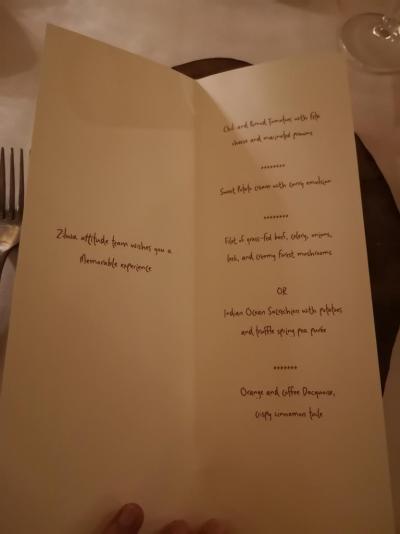 Zilwa attitude team wishes you a
Memorable experience
Chili and Burned Tomatoes with Feta
cheese and marinated prawns
********
Sweet Potato cream with curry emulsion
********
Filet of grass-fed beef, celery, onions,
leek, and creamy forest mushrooms
OR
Indian Ocean Sacréchien with potatoes
and truffle spring pea purée
*******
Orange and coffee Dacquoise,
crispy cinnamon tuile